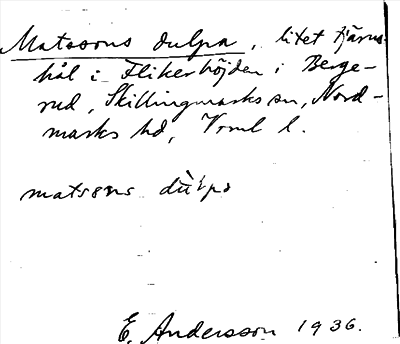 Matssons dulpa, litet tjärns-
hål i Flikerhöjden i Berge-
rud, Skillingmarks sn, Nord-
marks hd, Vrml l.
matsɛns
E. Andersson 1936.